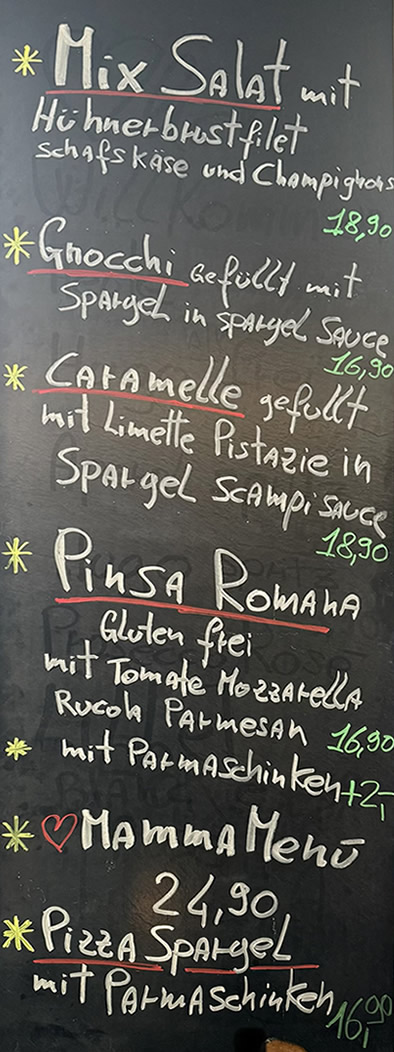 * Mix Salat mit
Hühnerbrustfilet
Schafskäse und Champignons
18,90
* Gnocchi gefüllt mit
Spargel in Spargel Sauce
16,90
* Caramelle gefullt
mit Limette Pistazie in
Spargel Scampi Sauce
18,90
* Pinsa Romana
Gluten frei
mit Tomate Mozzarella
Rucola Parmesan 16,90
* mit Parmaschinken +2,-
* ♡ Mamma Menü
24,90
* Pizza Spargel
mit Parmaschinken 16,90